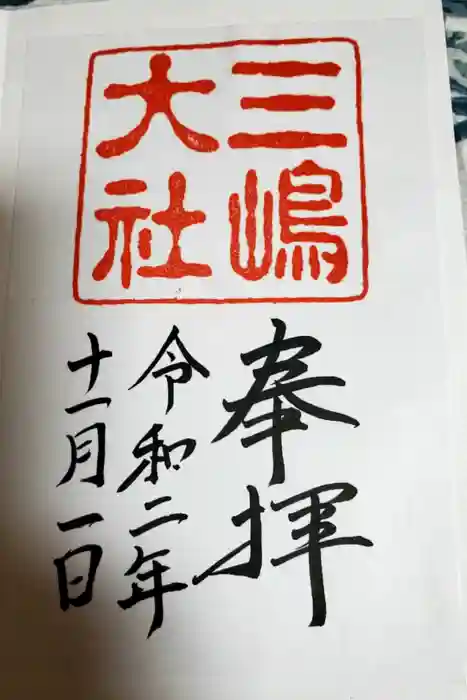 三嶋
大社
奉拝
令和二年
十一月一日